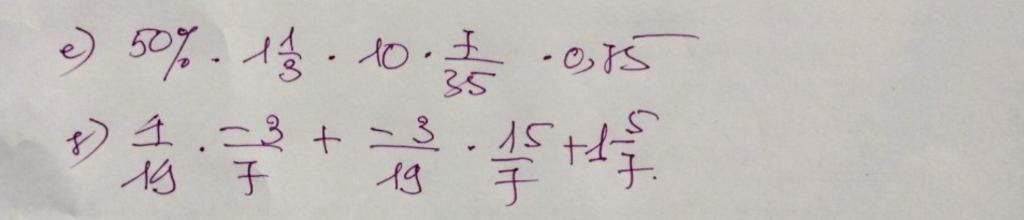 e) 50% . 1 1/3 . 10 . 7/35 . 0,75
f) 4/19 . -3/7 + -3/19 . 15/7 + 1 5/7.